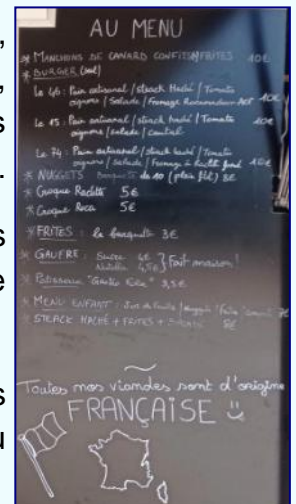 ,
,
s
.
s
e
s
u
AU MENU
* MANCHONS DE CANARD CONFITS/FRITES 10€
* BURGER (seul)
Le 46 : Pain artisanal / steack Haché / Tomate
oignons / Salade / Fromage Rocamadour AOP 10€
Le 15 : Pain artisanal / steack haché / Tomate 10€
oignons / salade / cantal
Le 74 : Pain artisanal / steack haché / Tomate
oignons / salade / Fromage à raclette fondu 10€
* NUGGETS Barquette de 10 (plein filet) 8€
* Croque Raclette 5€
* Croque Roca 5€
* FRITES : la barquette 3€
* GAUFRE : Sucre 4€
Nutella 4,5€ } Fait maison !
* Patisserie 3,5€
* MENU ENFANT : 7€
* STEACK HACHÉ + FRITES + 8€
Toutes nos viandes sont d'origine
FRANÇAISE